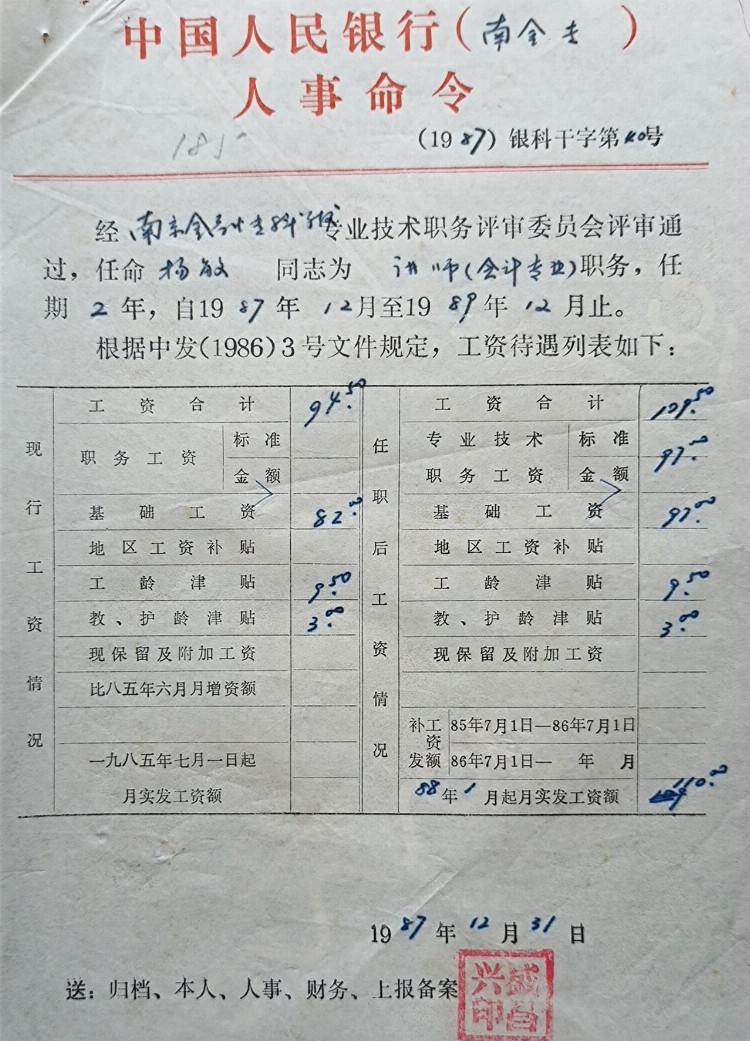 中国人民银行(南金专)
人事命令
185
(1987)银科干字第40号
经南京金融专科学校专业技术职务评审委员会评审通
过，任命杨敏同志为讲师(会计专业)职务，任
期2年，自1987年12月至1989年12月止。
根据中发(1986)3号文件规定，工资待遇列表如下：
现行工资情况
工资合计 94.50
职务工资 标准
金额
基础工资 82.00
地区工资补贴
工龄津贴 9.50
教、护龄津贴 3.00
现保留及附加工资
比八五年六月月增资额
一九八五年七月一日起
月实发工资额
任职后工资情况
工资合计 109.50
专业技术 标准 97.00
职务工资 金额
基础工资 97.00
地区工资补贴
工龄津贴 9.50
教、护龄津贴 3.00
现保留及附加工资
补发工资额
85年7月1日—86年7月1日
86年7月1日— 年 月
88年1月起月实发工资额 110.00
1987年12月31日
送：归档、本人、人事、财务、上报备案
盛昌兴印